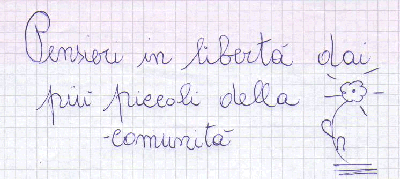 Pensieri in libertà dai
più piccoli della
comunità